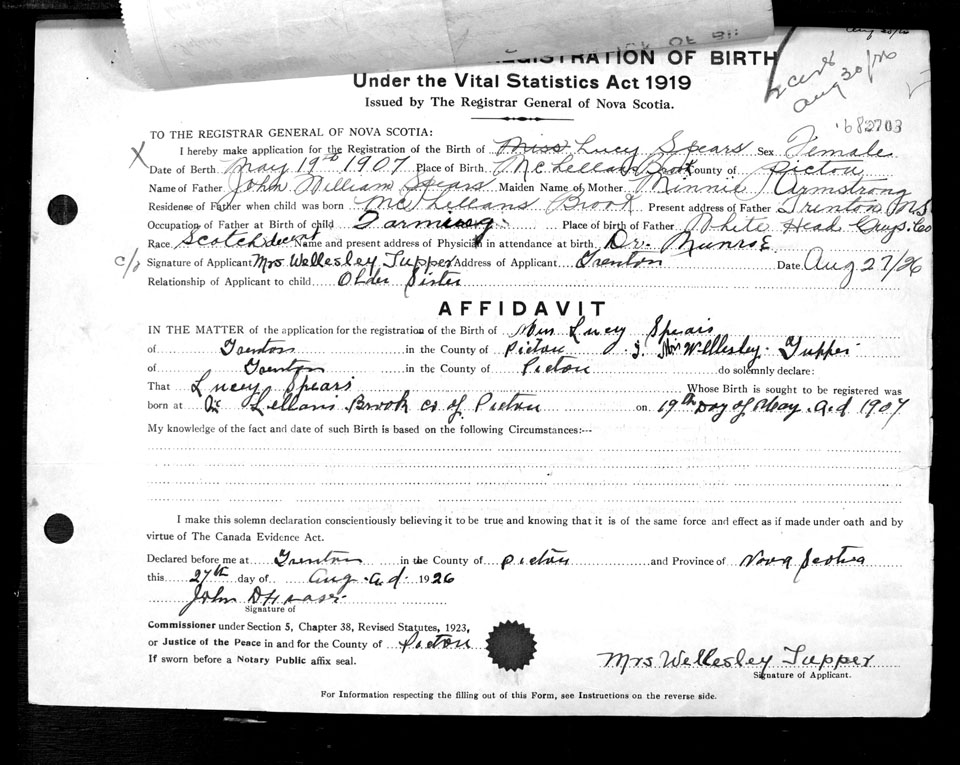 REGISTRATION OF BIRTH
Under the Vital Statistics Act 1919
Issued by The Registrar General of Nova Scotia.
Aug 30/26
682703
TO THE REGISTRAR GENERAL OF NOVA SCOTIA:
X I hereby make application for the Registration of the Birth of Miss Lucy Spears Sex Female
Date of Birth May 19th 1907 Place of Birth McLellans Brook County of Pictou
Name of Father John William Spears Maiden Name of Mother Minnie Armstrong
Residense of Father when child was born McLellans Brook Present address of Father Trenton N.S
Occupation of Father at Birth of child Farming Place of birth of Father White Head Guys. Co
Race Scotch Decent Name and present address of Physician in attendance at birth Dr. Munroe
c/o Signature of Applicant Mrs Wellesley Tupper Address of Applicant Trenton Date Aug 27/26
Relationship of Applicant to child Older Sister
AFFIDAVIT
IN THE MATTER of the application for the registration of the Birth of Miss Lucy Spears
of Trenton in the County of Pictou I, Mrs Wellesley Tupper
of Trenton in the County of Pictou do solemnly declare:
That Lucey Spears Whose Birth is sought to be registered was
born at Mc Lellans Brook co of Pictou on 19th Day of May A.d 1907
My knowledge of the fact and date of such Birth is based on the following Circumstances:--
I make this solemn declaration conscientiously believing it to be true and knowing that it is of the same force and effect as if made under oath and by
virtue of The Canada Evidence Act.
Declared before me at Trenton in the County of Pictou and Province of Nova Scotia
this 27th day of Aug. A.d. 1926
John D Fraser
Signature of
Commissioner under Section 5, Chapter 38, Revised Statutes, 1923,
or Justice of the Peace in and for the County of Pictou
If sworn before a Notary Public affix seal.
Mrs Wellesley Tupper
Signature of Applicant.
For Information respecting the filling out of this Form, see Instructions on the reverse side.